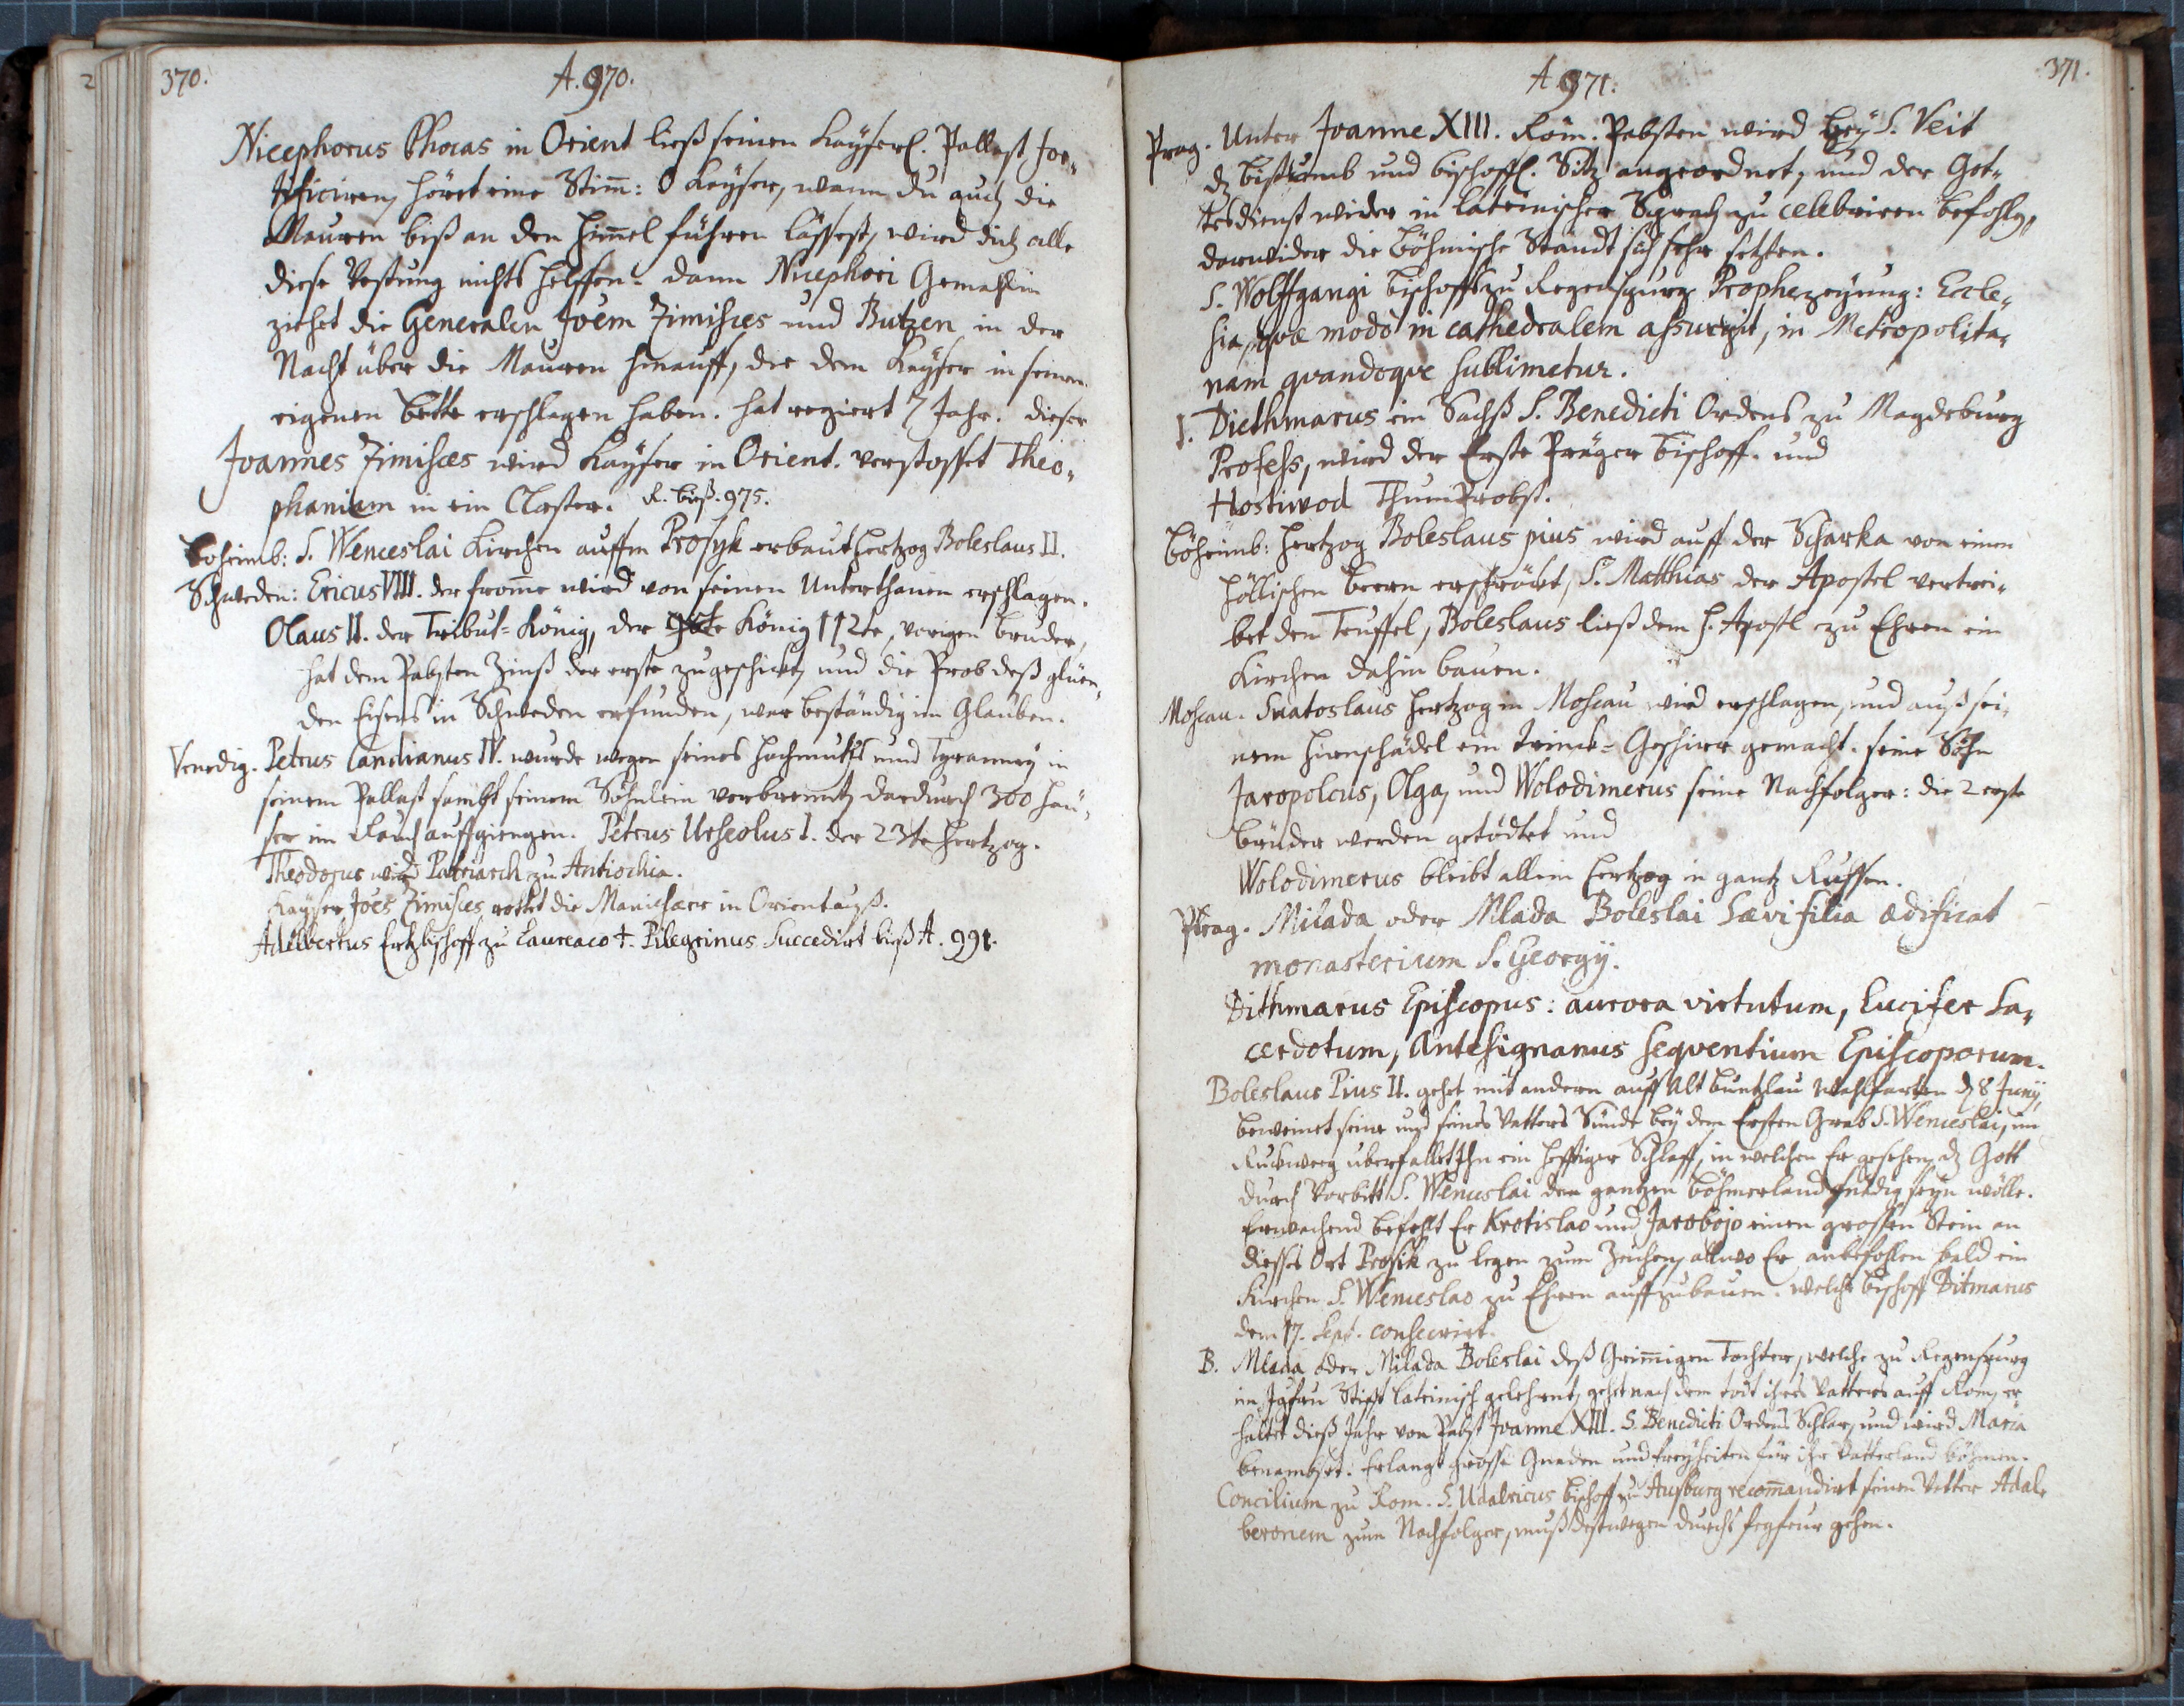 370.
A. 970.
Nicephorus Phocas in Orient ließ seinen Kayserl. Pallast for-
tificiren, höret eine Stim̄: O Keyser, wann du auch die
Mauren biß an den Him̄el führen lässest, wird dich alle
diese Vestung nichts helffen. dann Nicephori Gemahlin
ziehet die Generalen Joem Zimisces und Butzen in der
Nacht über die Mauren hinauff, die dem Kayser in seinem
eigenen bette erschlagen haben. hat regiert 7 Jahr. dieser
Joannes Zimisces wird Kayser in Orient. verstosset Theo-
phaniam in ein Closter. R. biß. 975.
Boheimb: S. Wenceslai Kirchen auffm Prosyk erbaut Hertzog Boleslaus II.
Schweden: Ericus VIII. der from̄e wird von seinen Unterthanen erschlagen.
Olaus II. der Tribut-König, der König 112te, vorigen bruder,
hat dem Pabsten Zinß der erste zugeschickt, und die Prob deß glüen-
den Eisens in Schweden erfunden, war beständig im Glauben.
Venedig. Petrus Candianus IV. wurde wegen seines hochmuths und Tyranney in
seinem Pallast sambt seinem Söhnlein verbrennt, dardurch 300 häu-
ser im Rauch auffgiengen. Petrus Urseolus I. der 23te Hertzog.
Theodorus wird Patriarch zu Antiochia.
Kayser Joes Zimisces rottet die Manichaer in Orient auß.
Adelbertus Ertzbischoff zu Laureaco †. Pilegrinus succedirt biß A. 991.
371.
A. 971.
Prag. Unter Joanne XIII. Röm. Pabsten wird bey S. Veit
dz bistumb und bischoffl. Sitz angeordnet, und der Got-
tesdienst wider in lateinischer Sprach zu celebriren befohlen,
darwider die böhmische Ständt sich sehr setzten.
S. Wolffgangi bischoffs zu Regenspurg Prophezeyung: Eccle-
sia, qvæ modò in cathedralem assurgit, in Metropolita-
nam qvandoqve sublimetur.
1. Diethmarus ein Sachß S. Benedicti Ordens zu Magdeburg
Profess, wird der Erste Präger bischoff. und
Hostiwod ThumProbst.
Böheimb: Hertzog Boleslaus pius wird auff der Scharka von einen
höllischen beern erschröckt, S. Matthias der Apostel vertrei-
bet den Teuffel, Boleslaus ließ dem H. Apostl zu Ehren ein
Kirchen dahin bauen.
Moscau. Suatoslaus Hertzog in Moscau wird erschlagen, und auß sei-
nem hirnschädel ein trinck-Geschirr gemacht. seine Söhn
Jaropolcus, Olga, und Wolodimerus seine Nachfolger: die 2 erste
brüder werden getödtet und
Wolodimerus bleibt allein Hertzog in gantz Russen.
Prag. Milada oder Mlada Boleslai Sævi filia ædificat
monasterium S. Georgij.
Dithmarus Episcopus: aurora virtutum, Lucifer Sa-
cerdotum, Antesignanus seqventium Episcoporum.
Boleslaus Pius II. gehet mit andern auff Alt Buntzlau wahlfarten d. 8 Junij,
beweinet seine und seines Vatters Sünde bey dem Ersten Grab S. Wenceslai, im
Ruckweeg uberfallet Ihn ein hefftiger Schlaff, in welchen Er gesehen, dz Gott
durch Vorbitt S. Wenceslai den gantzen böhmerland gnädig seyn wölle.
Erwachend befehlt Er Krotislao und Jarobojo einen grossen Stein an
disses Ort Prosik zu legen zum Zeichen, allwo Er anbefohlen bald ein
Kirchen S. Wenceslao zu Ehren auffzubauen. welche bischoff Ditmarus
dem 17. Sept. consecrirt.
B. Mlada oder Milada Boleslai deß Grim̄igen Tochter, welche zu Regenspurg
im Jgfrau Stifft lateinisch gelehrnt, gehet nach dem tod ihres Vatters auff Rom, er-
haltet dieß Jahr von Pabst Joanne XIII. S. Benedicti Ordens Schlar, und wird Maria
benambset. Erlangt grosse Gnaden und freyheiten für ihr Vatterland böhmen.
Concilium zu Rom. S. Udalricus bischoff zu Augspurg recom̄andirt seinen Vetter Adal-
beronem zum Nachfolger, muß destwegen durchs fegfeur gehen.